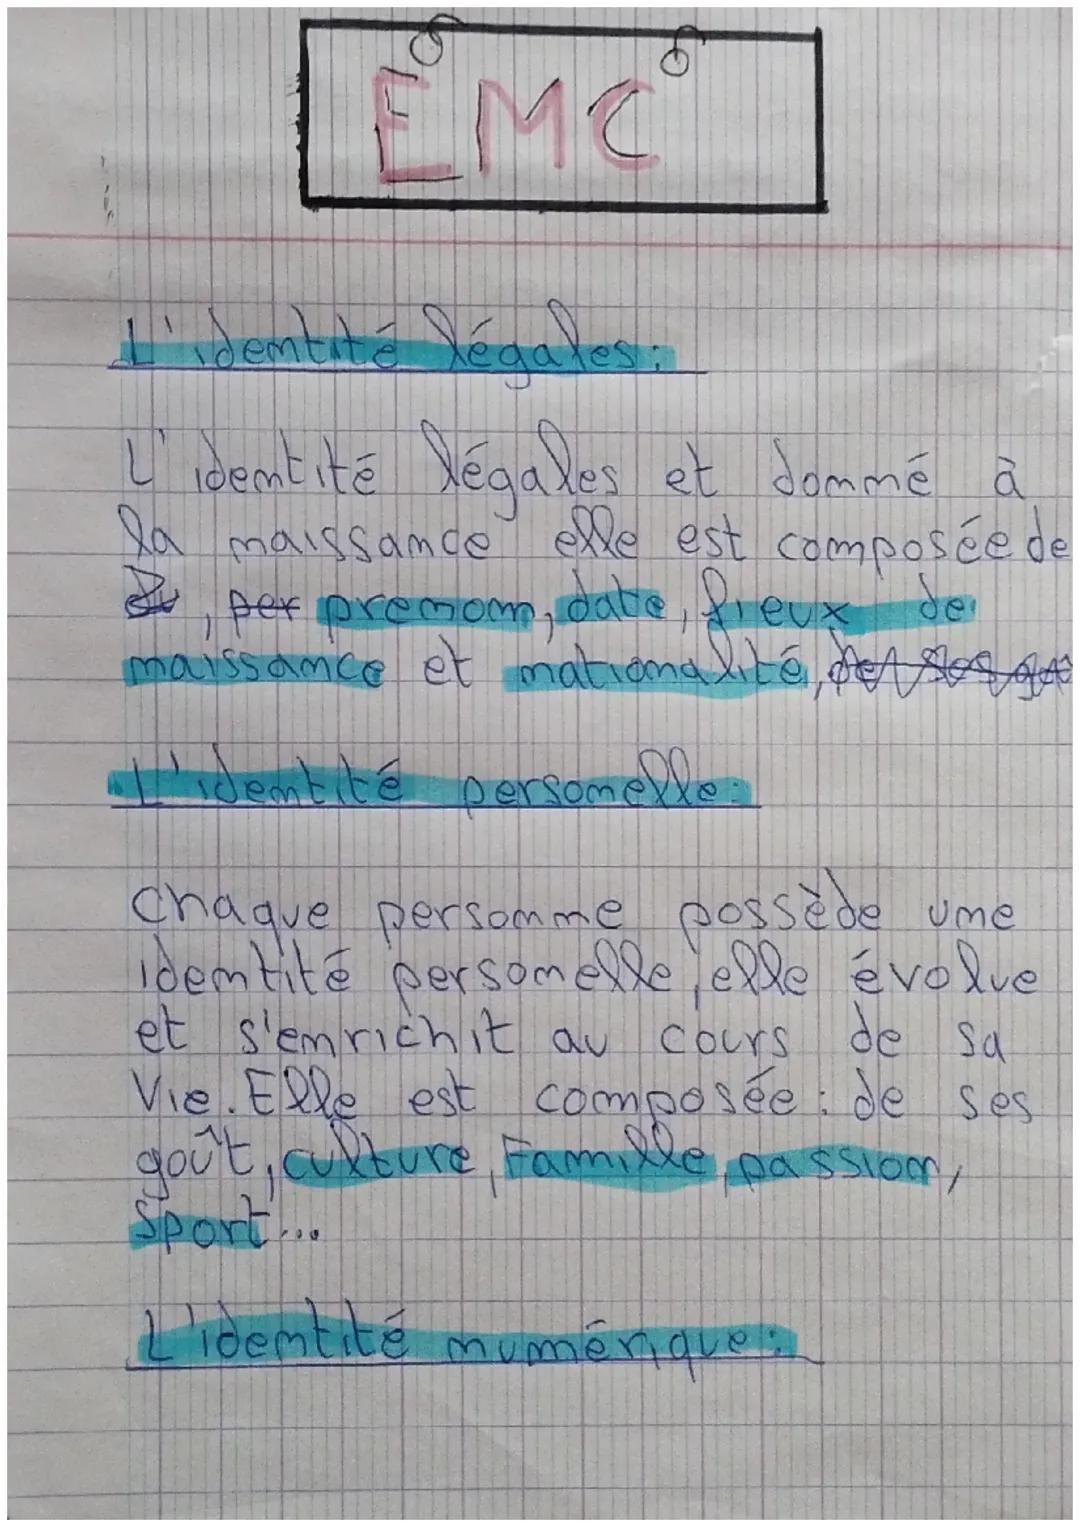 EMC
L'identité légales :
L'identité légales et donné à
la naissance elle est composée de
, per prenom, date, lieux de
naissance et nationalité,
L'identité personelle :
Chaque personne possède une
identité personelle, elle évolve
et s'enrichit au cours de sa
Vie. Elle est composée : de ses
goût, culture, Famille, passion,
Sport...
L'identité numérique :